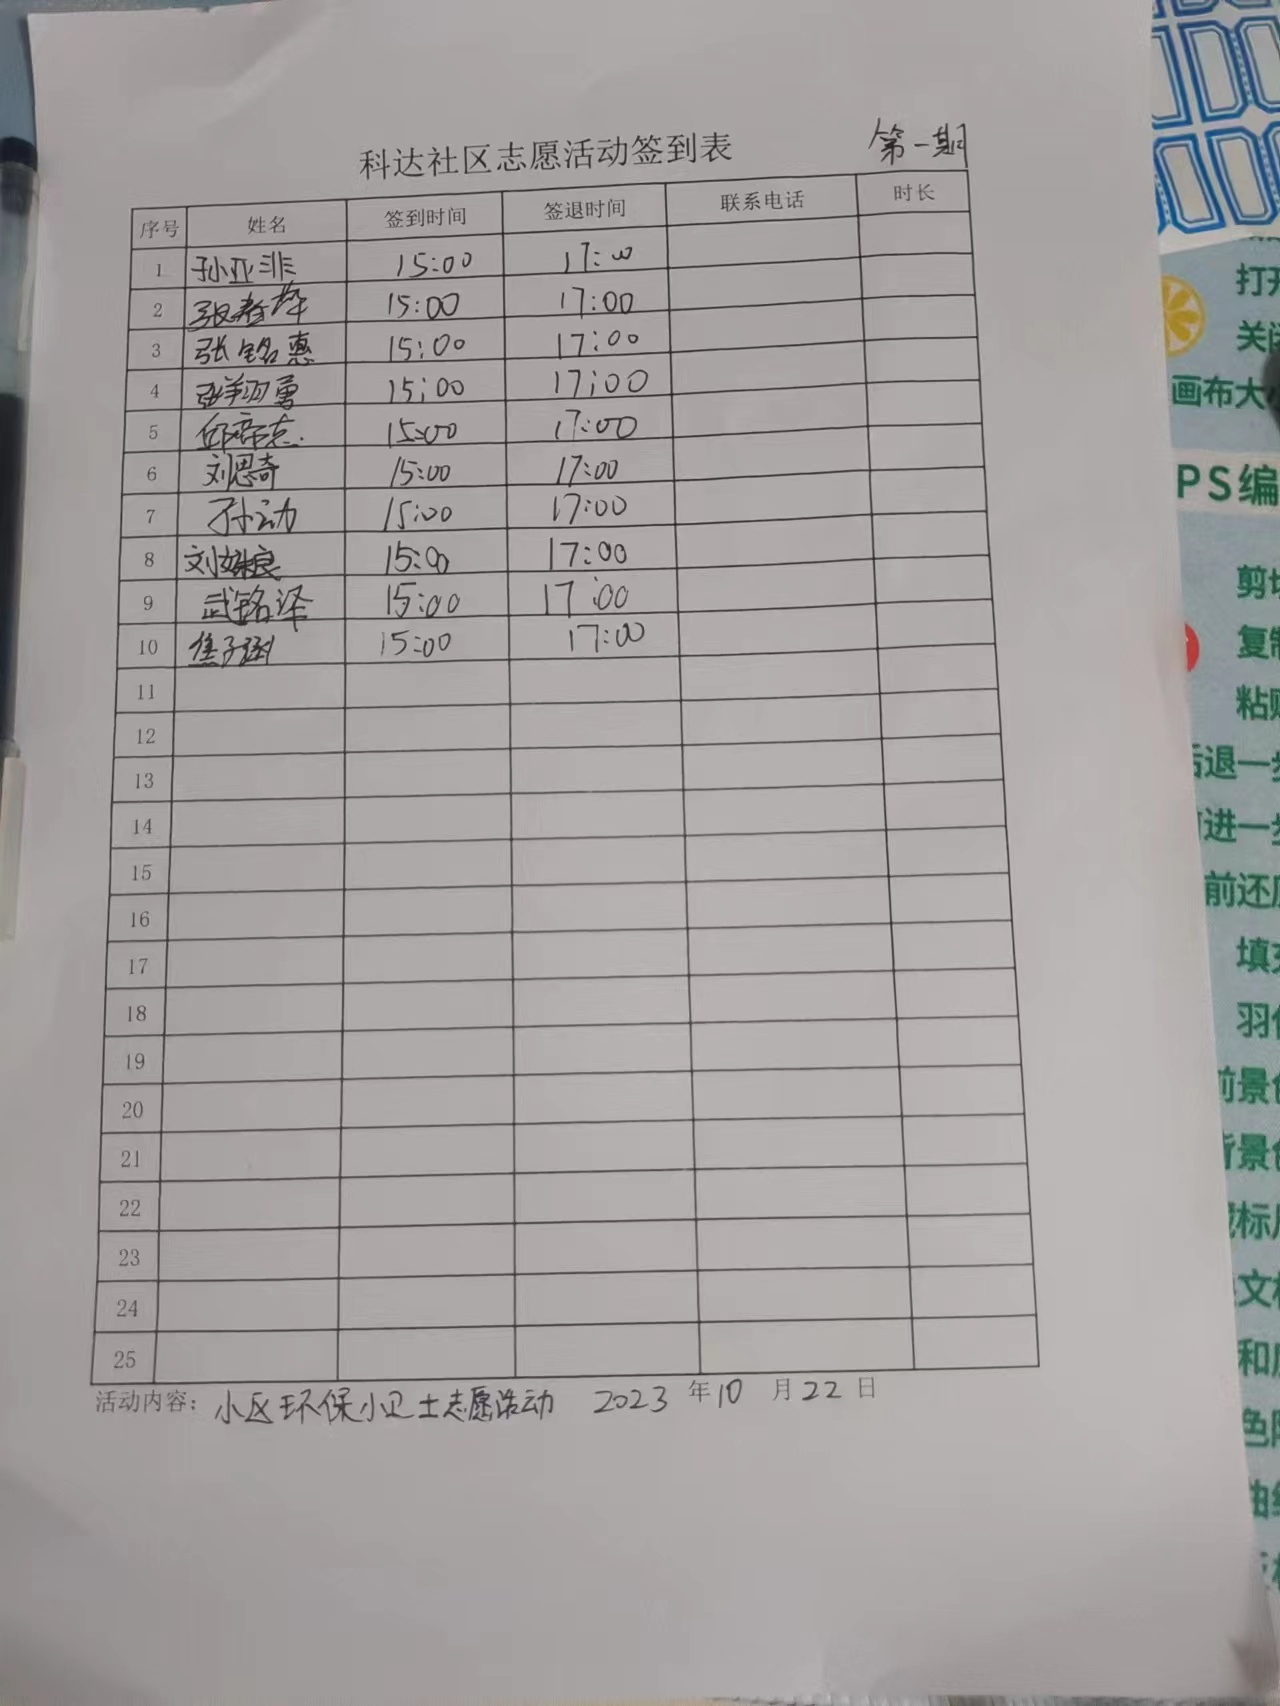 科达社区志愿活动签到表 第一期
序号 姓名 签到时间 签退时间 联系电话 时长
1 孙亚非 15:00 17:00
2 15:00 17:00
3 张铭惠 15:00 17:00
4 15:00 17:00
5 15:00 17:00
6 刘思奇 15:00 17:00
7 孙动 15:00 17:00
8 15:00 17:00
9 武铭泽 15:00 17:00
10 焦子涵 15:00 17:00
11
12
13
14
15
16
17
18
19
20
21
22
23
24
25
活动内容: 小区环保小卫士志愿活动 2023 年 10 月 22 日
打开
关闭
画布大
PS编
剪切
复制
粘贴
后退一步
前进一步
前还原
填充
羽化
前景色
背景色
标尺
文档
和
色阶
曲线